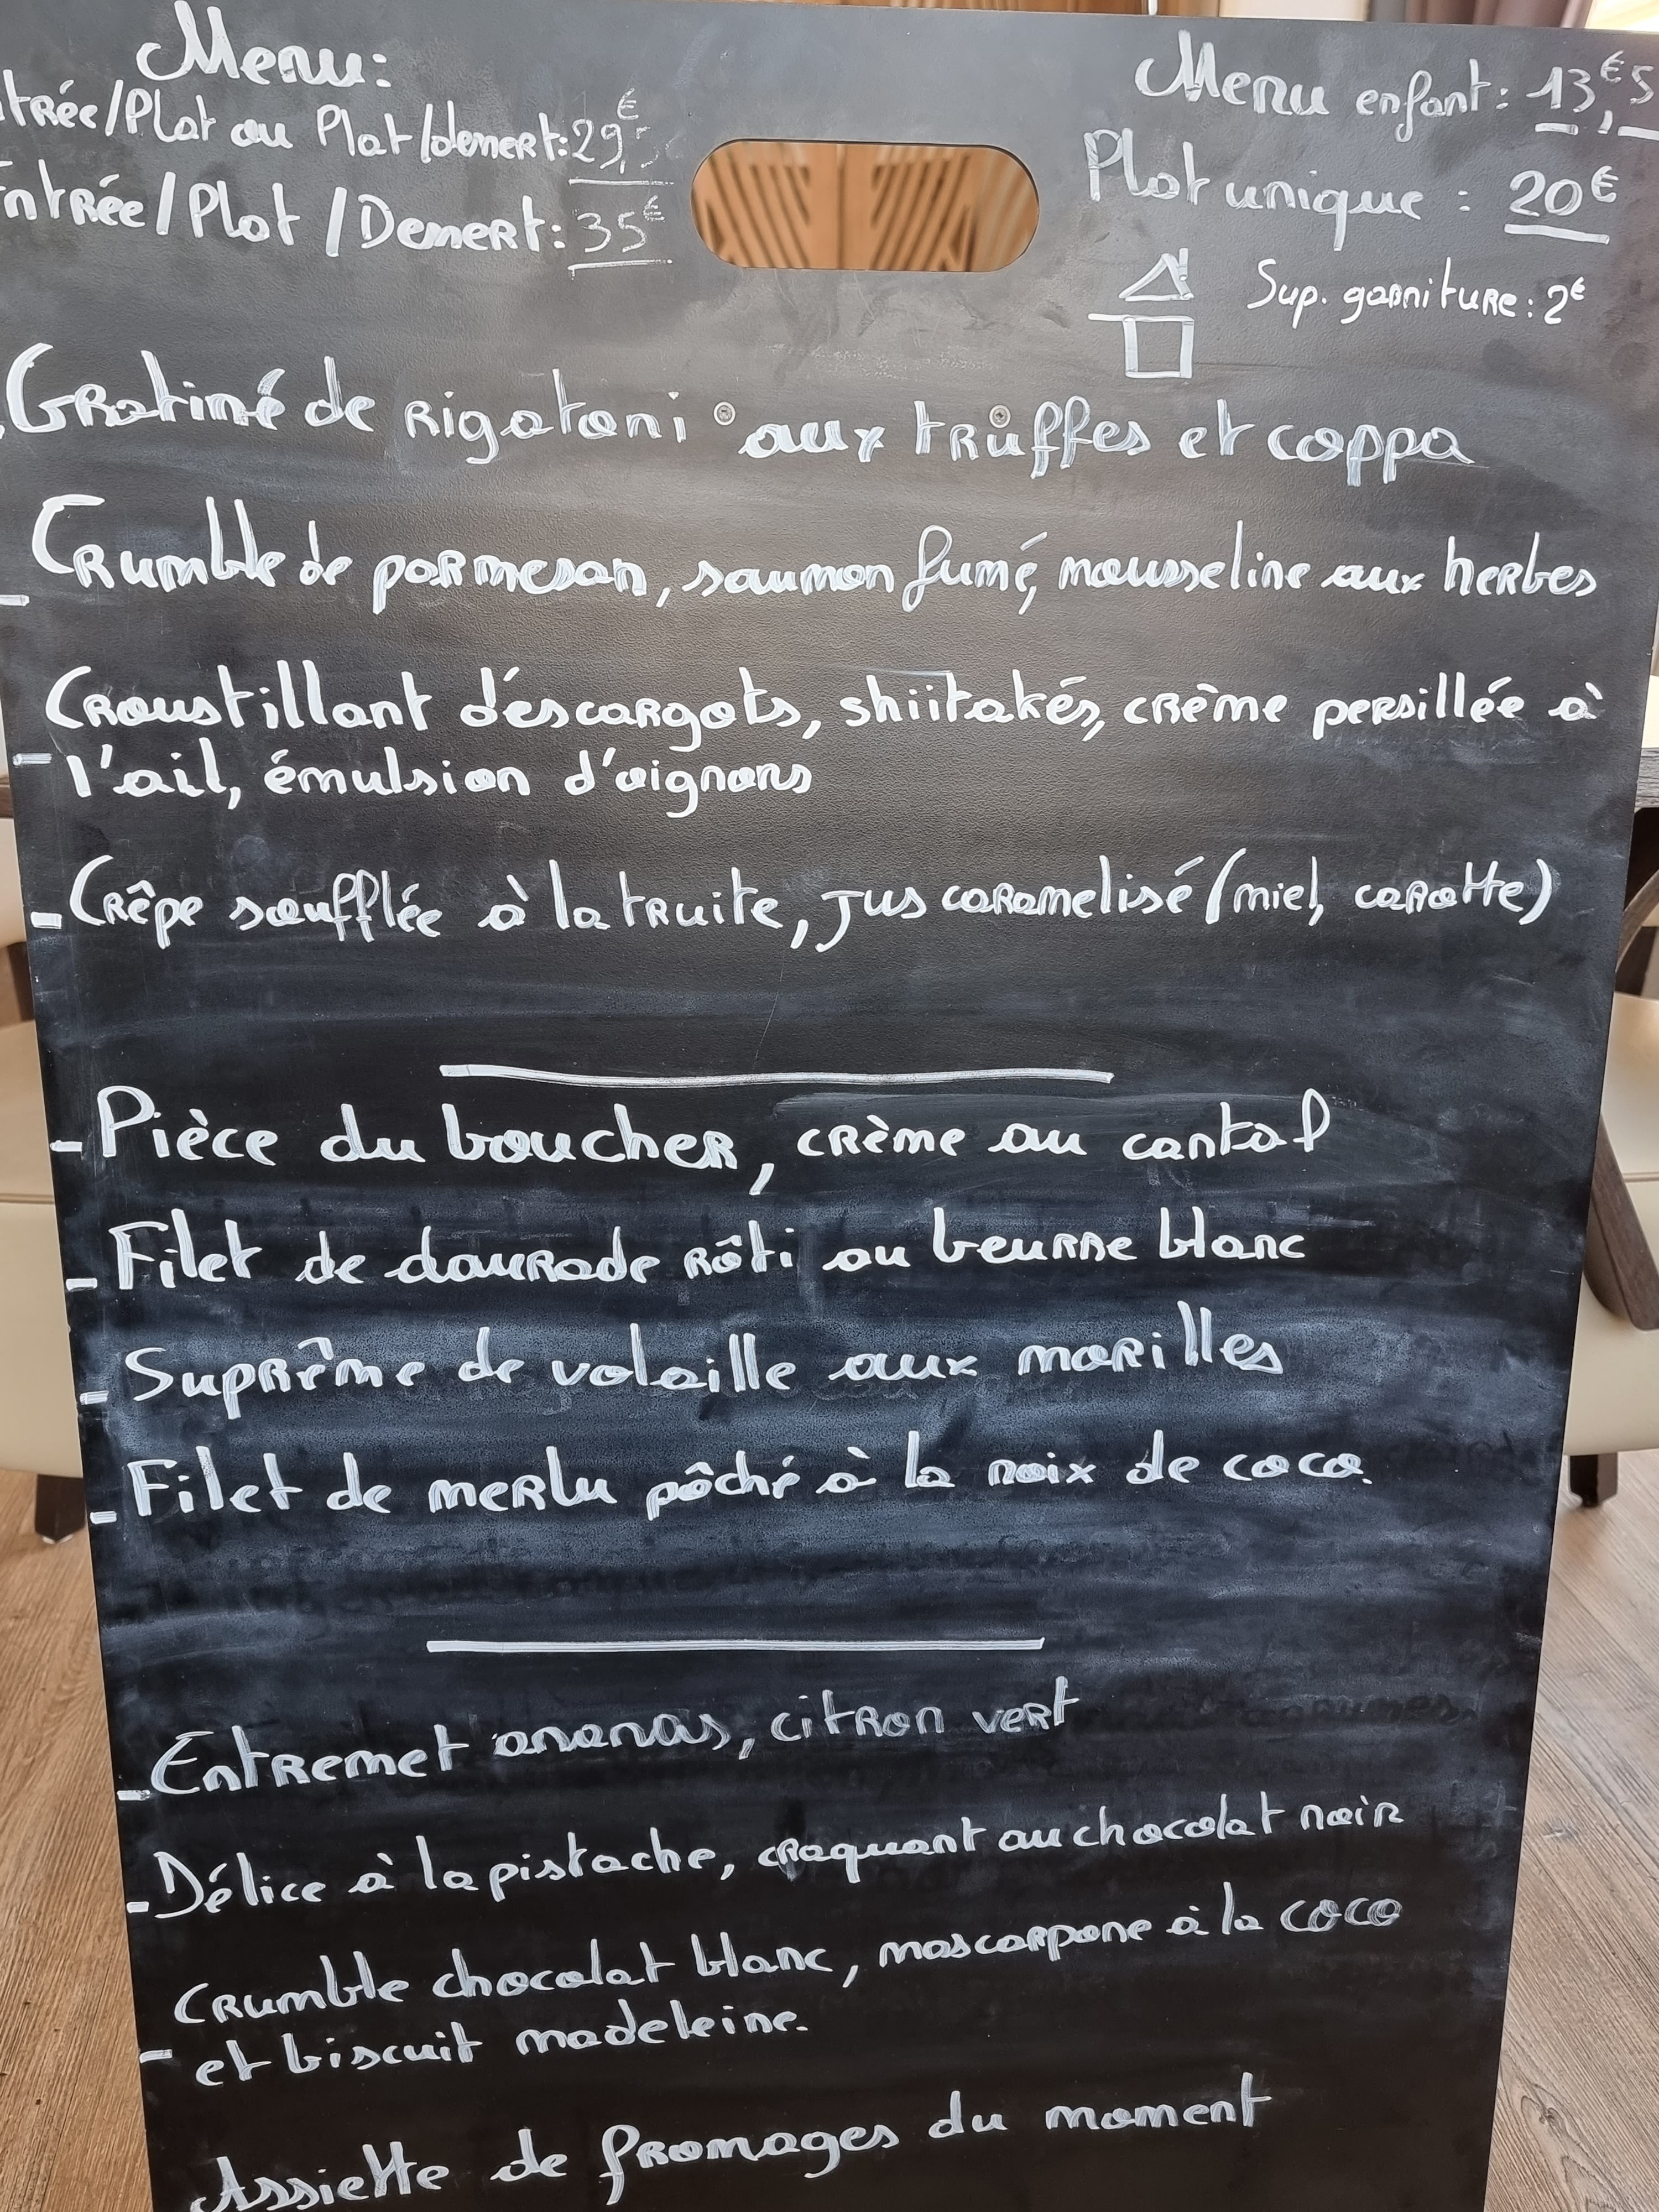 Menu:
trée/Plat ou Plat/dessert: 29,5€
Entrée/Plat/Dessert: 35€
Menu enfant: 13,€5
Plat unique : 20€
Sup. garniture: 2€
Gratiné de rigatoni aux trûffes et coppa
Crumble de parmesan, saumon fumé, mousseline aux herbes
Croustillant d'éscargots, shiitakés, crème persillée à
l'ail, émulsion d'oignons
- Crêpe soufflée à la truite, jus caramelisé (miel, carotte)
- Pièce du boucher, crème au cantal
- Filet de daurade rôti au beurre blanc
- Suprême de volaille aux morilles
- Filet de merlu pôché à la noix de coco.
- Entremet ananas, citron vert
- Délice à la pistache, craquant au chocolat noir
Crumble chocolat blanc, mascarpone à la coco
- et biscuit madeleine.
Assiette de fromages du moment